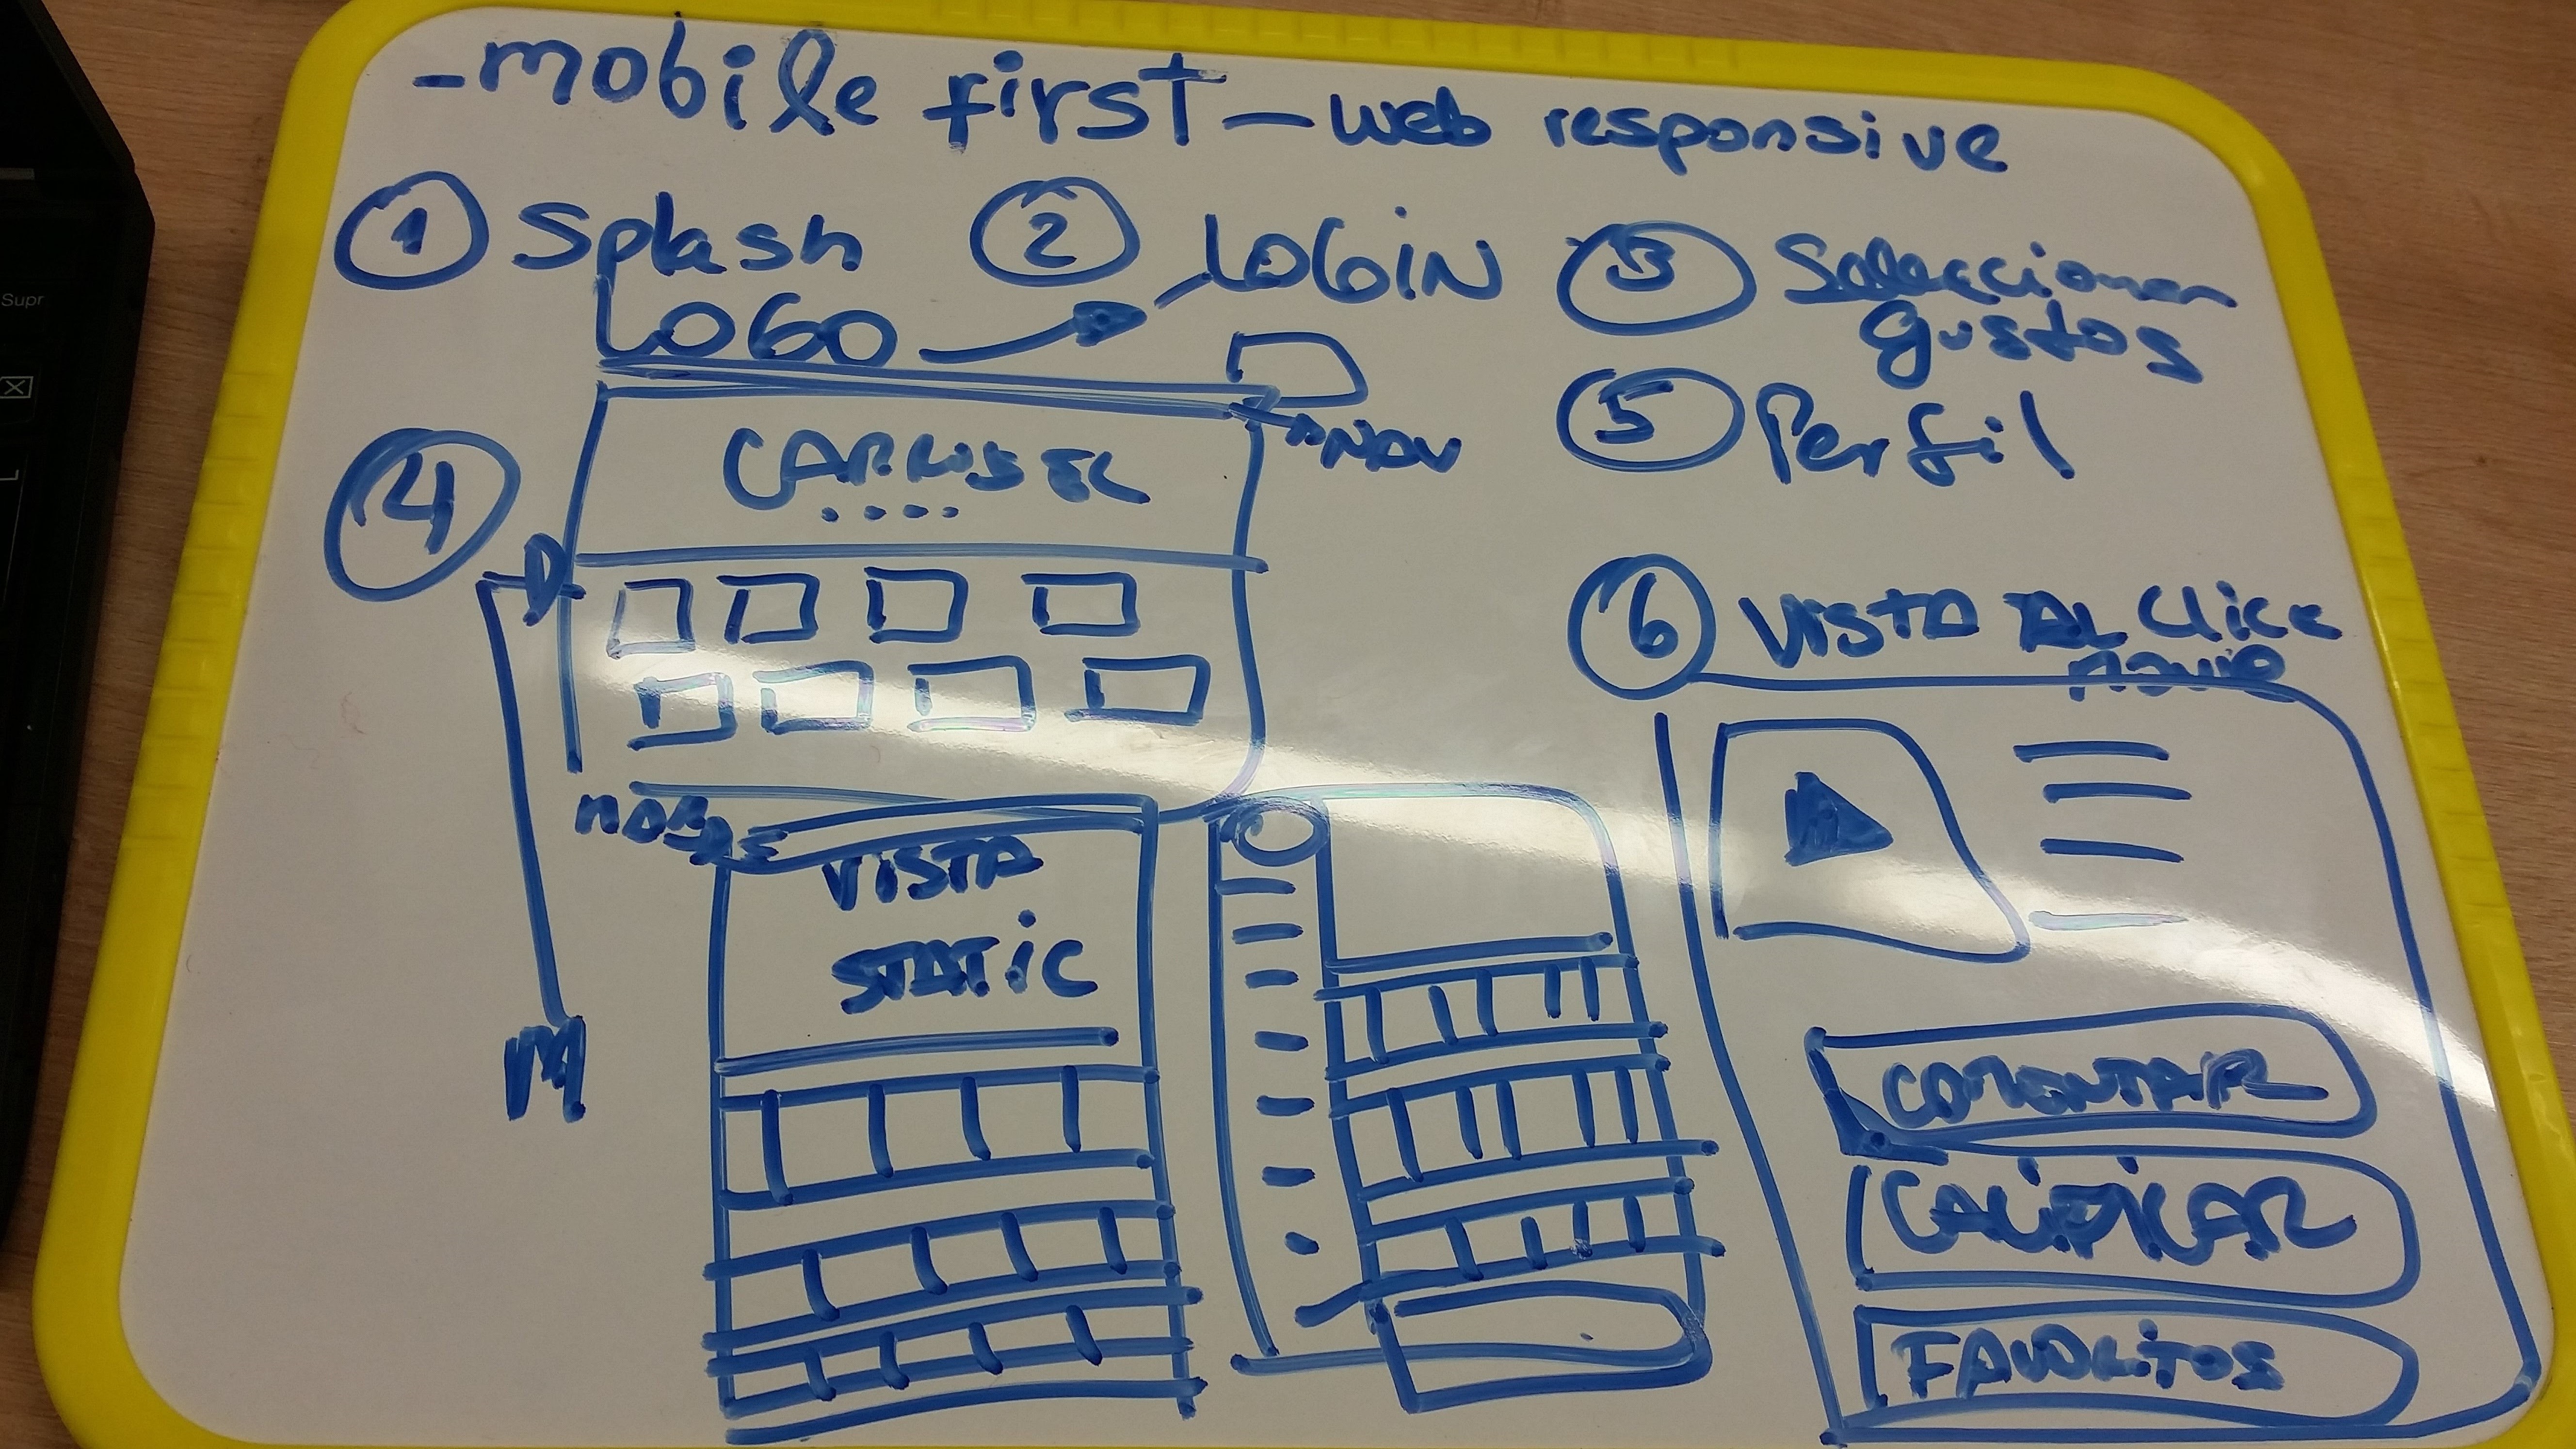 - mobile first - web responsive
1 Splash
LOGO
2 LOGIN
3 Seleccionar
gustos
4
CARUSEL
NAV
5 Perfil
D
M
VISTA
STATIC
6 VISTA AL Click
movie
COMENTAR
CALIFICAR
FAVORITOS
Supr